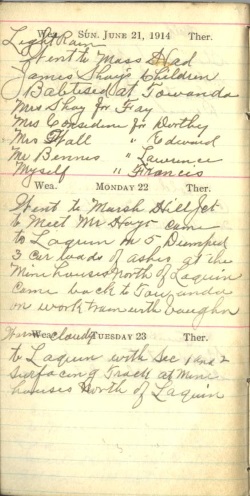 Wea. SUN. JUNE 21, 1914 Ther.
Light Rain
Went to Mass Had
James Shay's Children
Babtised at Towanda
Mrs Shay for Fay
Mrs Considine for Dorthy
Mrs Wall " Edward
Mr Bennis " Lawrence
Myself " Francis
Wea. MONDAY 22 Ther.
Went to Marsh Hill Jct
to Meet Mr Hays came
to Laquin No 5 Dumped
3 Car loads of ashes at the
Mine houses North of Laquin
Came back to Towanda
on work train with Vaughn
Wea. TUESDAY 23 Ther.
cloudy
to Laquin with Sec 1 and 2
Surfacing Track at Mine
houses North of Laquin